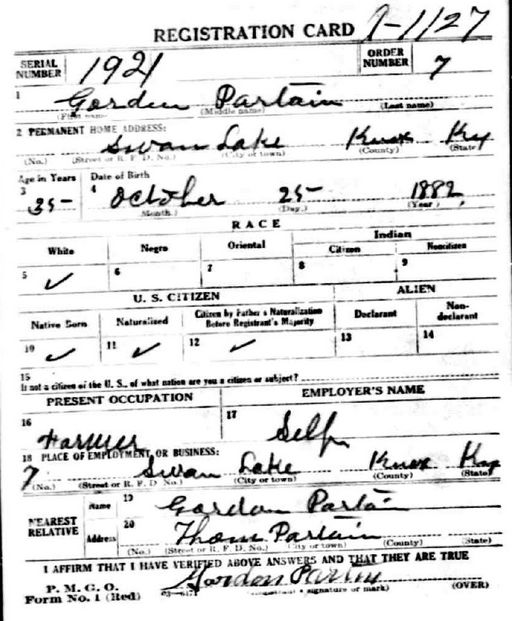 REGISTRATION CARD 9-1/27
SERIAL NUMBER 1921 ORDER NUMBER 7
1 Gorden Partain
(First name) (Middle name) (Last name)
2 PERMANENT HOME ADDRESS:
Swan Lake Knox Ky
(No.) (Street or R. F. D. No.) (City or town) (County) (State)
Age in Years Date of Birth
3 35 4 October 25 1882
(Month.) (Day.) (Year.)
RACE
White Negro Oriental Indian
Citizen Noncitizen
5 ✓ 6 7 8 9
U. S. CITIZEN ALIEN
Native Born Naturalized Citizen by Father's Naturalization Before Registrant's Majority Declarant Non-declarant
10 ✓ 11 ✓ 12 ✓ 13 14
15
If not a citizen of the U. S., of what nation are you a citizen or subject?
PRESENT OCCUPATION EMPLOYER'S NAME
16 Farmer 17 Self
18 PLACE OF EMPLOYMENT OR BUSINESS:
7 Swan Lake Knox Ky
(No.) (Street or R. F. D. No.) (City or town) (County) (State)
NEAREST RELATIVE
Name 19 Gordon Partain
Address 20 Thom Partain
(No.) (Street or R. F. D. No.) (City or town) (County) (State)
I AFFIRM THAT I HAVE VERIFIED ABOVE ANSWERS AND THAT THEY ARE TRUE
P. M. G. O.
Form No. 1 (Red) Gordon Partin
(Registrant's signature or mark) (OVER)